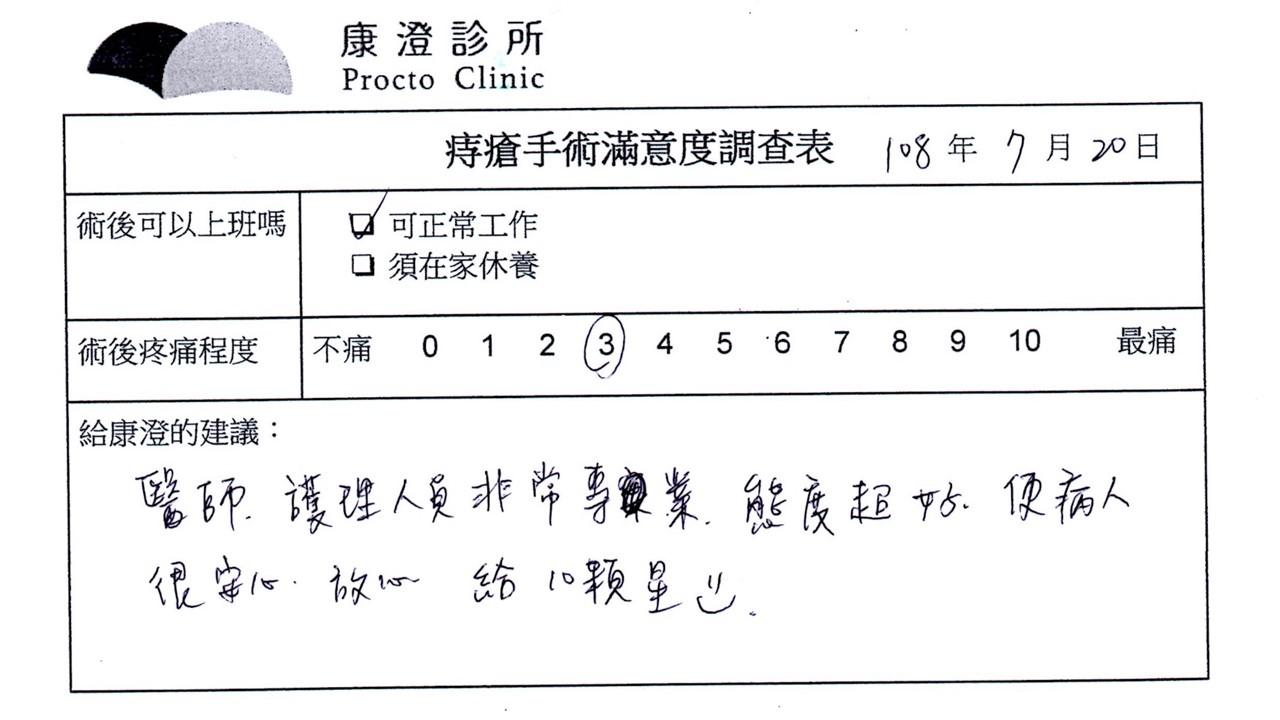 康澄診所
Procto Clinic
痔瘡手術滿意度調查表 108年7月20日
術後可以上班嗎 ☑ 可正常工作
☐ 須在家休養
術後疼痛程度 不痛 0 1 2 3 4 5 6 7 8 9 10 最痛
給康澄的建議：
醫師.護理人員非常專業.態度超好.使病人
很安心.放心 給10顆星